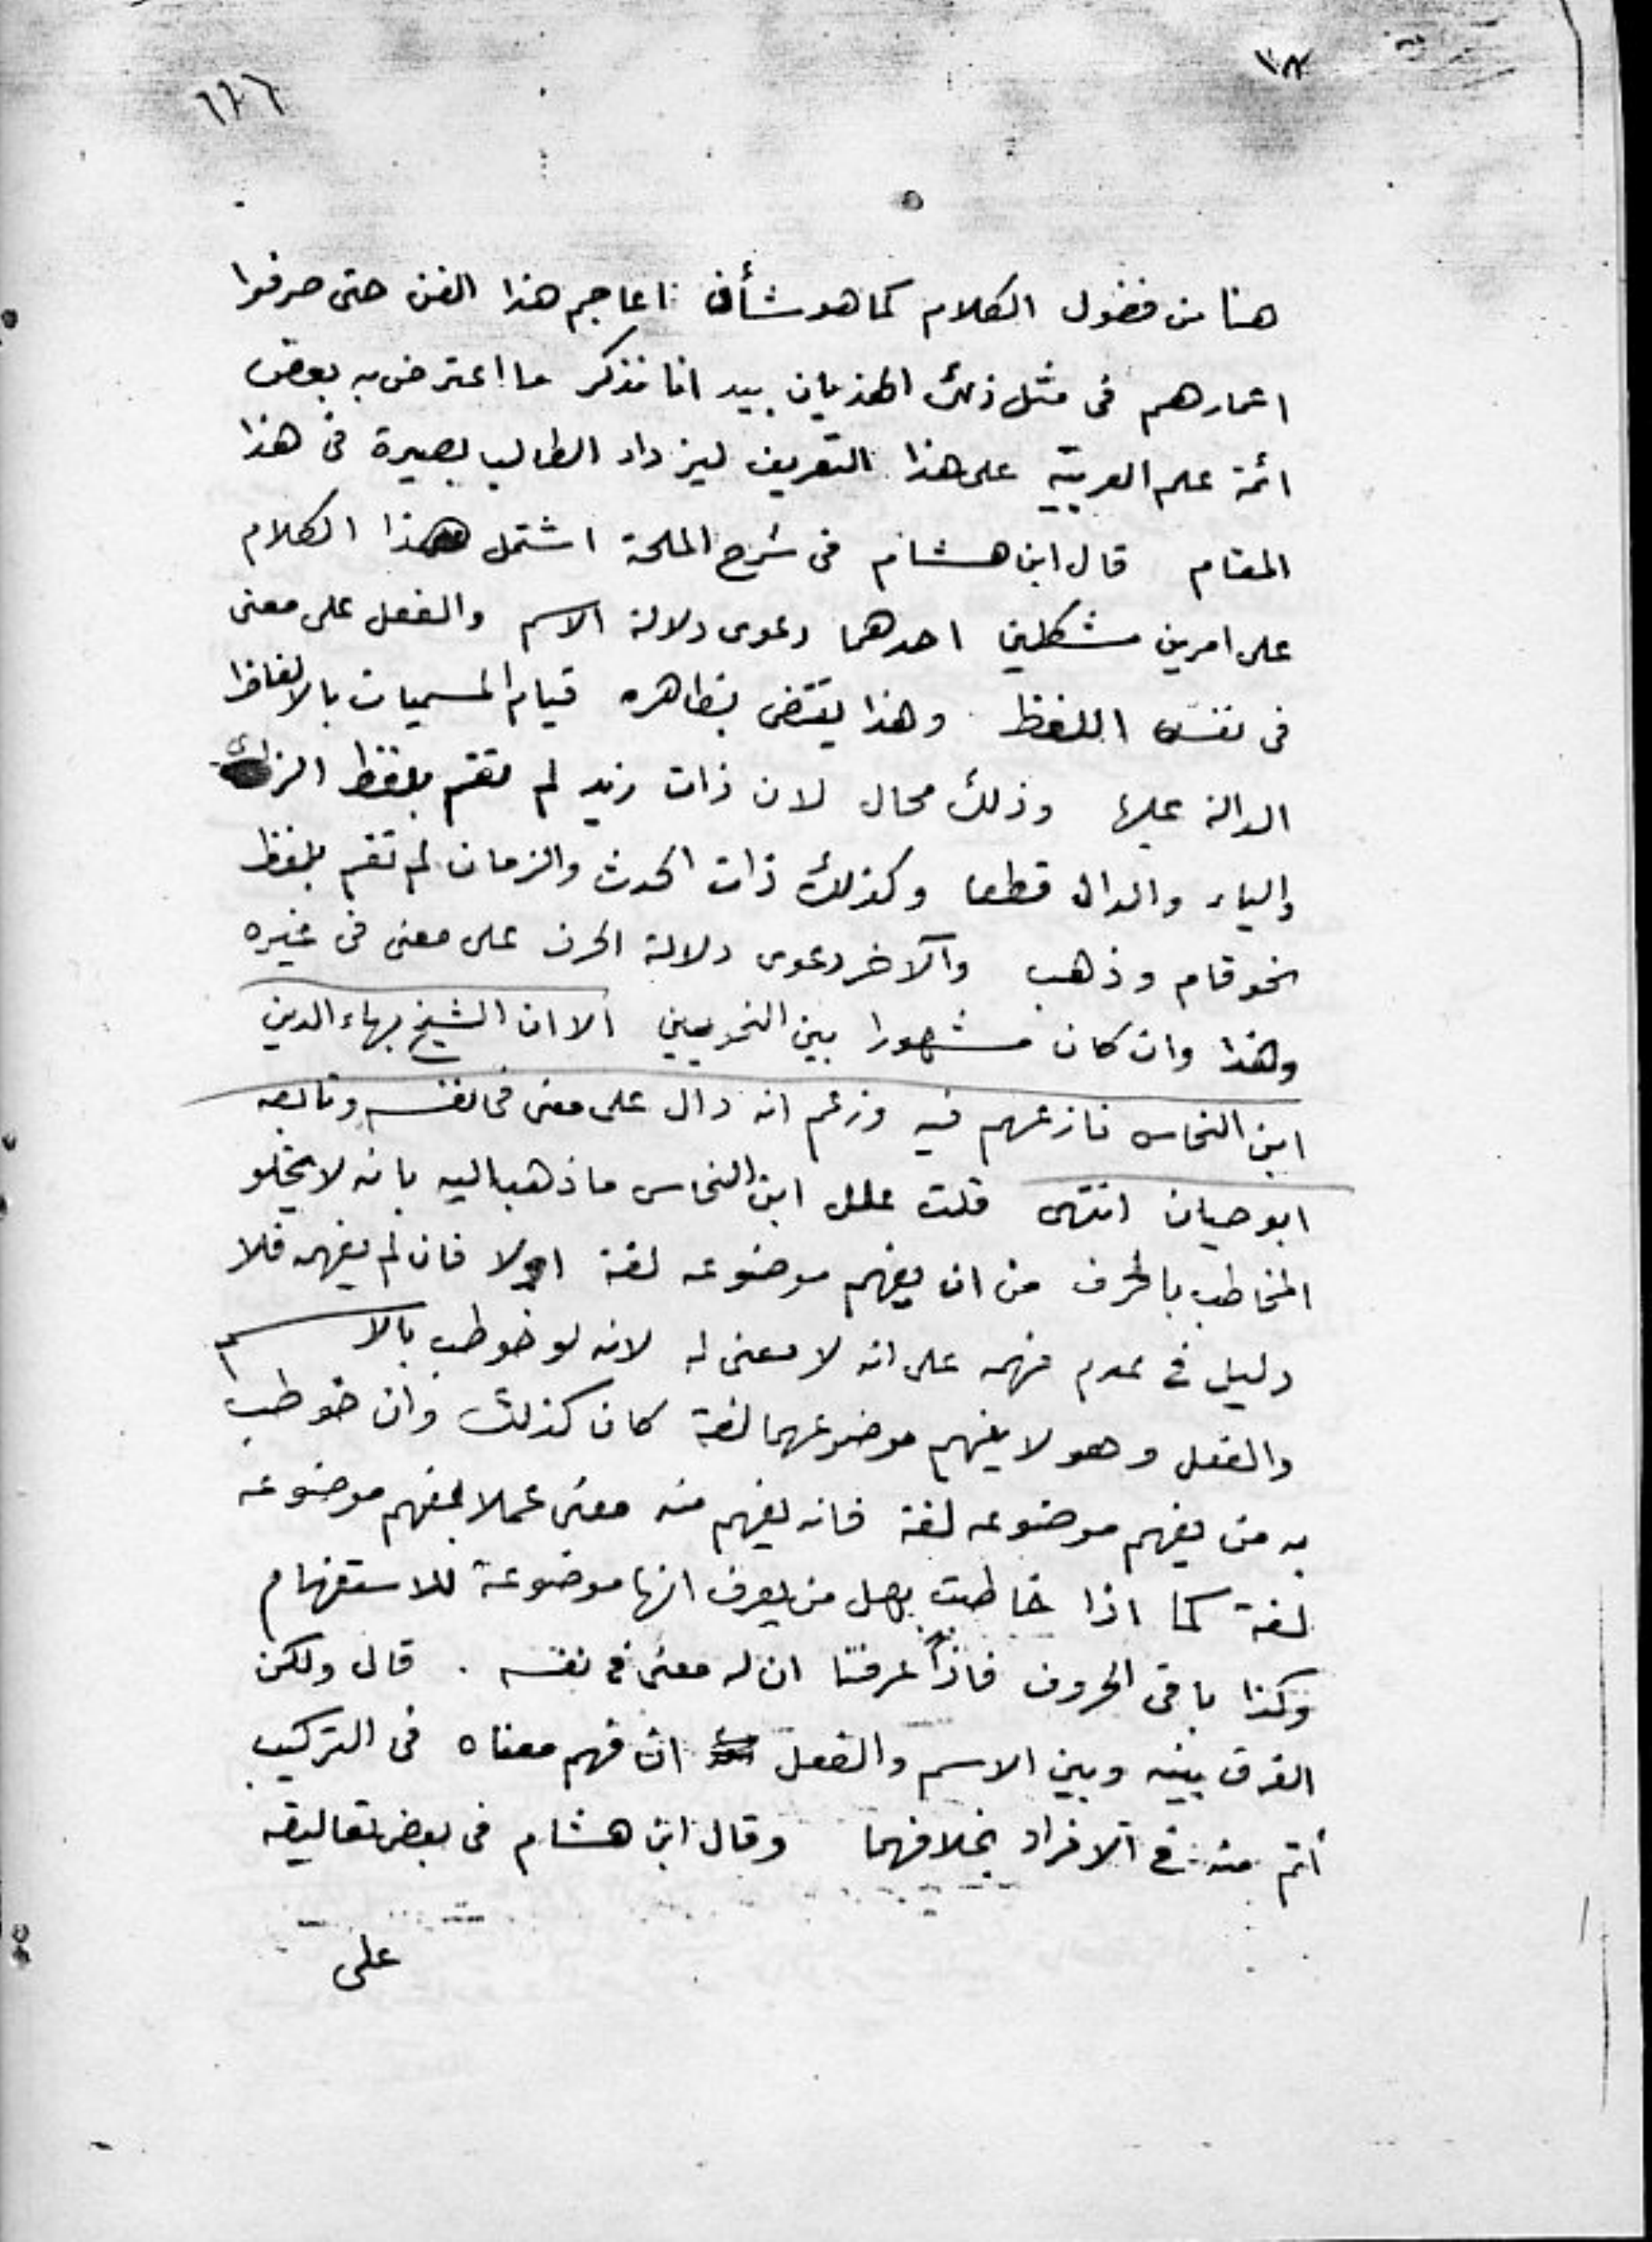 ١٨
هنا من فضول الكلام كما هو شأن اعاجم هذا الفن حتى صرفوا
اعمارهم فى مثل ذلك الهذيان بيد انا نذكر ما اعترض به بعض
ائمة علم العربية على هذا التعريف ليزداد الطالب بصيرة فى هذا
المقام قال ابن هشام فى شرح اللمحة اشتمل هذا الكلام
على امرين مشكلين احدهما دعوى دلالة الاسم والفعل على معنى
فى نفس اللفظ وهذا يقتضى بظاهره قيام المسميات بالالفاظ
الدالة عليها وذلك محال لان ذات زيد لم تقم بلفظ الزاى
والياء والدال قطعا وكذلك ذات الحدث والزمان لم تقم بلفظ
نحو قام وذهب والآخر دعوى دلالة الحرف على معنى فى غيره
وهذا وان كان مشهورا بين النحويين الا ان الشيخ بهاء الدين
ابن النحاس نازعهم فيه وزعم انه دال على معنى فى نفسه وتابعه
ابو حيان انتهى قلت علل ابن النحاس ما ذهب اليه بانه لا يخلو
المخاطب بالحرف من ان يفهم موضوعه لغة اولا فان لم يفهمه فلا
دليل فى عدم فهمه على انه لا معنى له لانه لو خوطب بالاسم
والفعل وهو لا يفهم موضوعهما لغة كان كذلك وان خوطب
به من يفهم موضوعه لغة فانه يفهم منه معنى عملا بفهم موضوعه
لغة كما اذا خاطبت بهل من يعرف انها موضوعة للاستفهام
وكذا باقى الحروف فاذا عرفنا ان له معنى فى نفسه . قال ولكن
الفرق بينه وبين الاسم والفعل ان فهم معناه فى التركيب
أتم منه فى الافراد بخلافهما وقال ابن هشام فى بعض تعاليقه
على